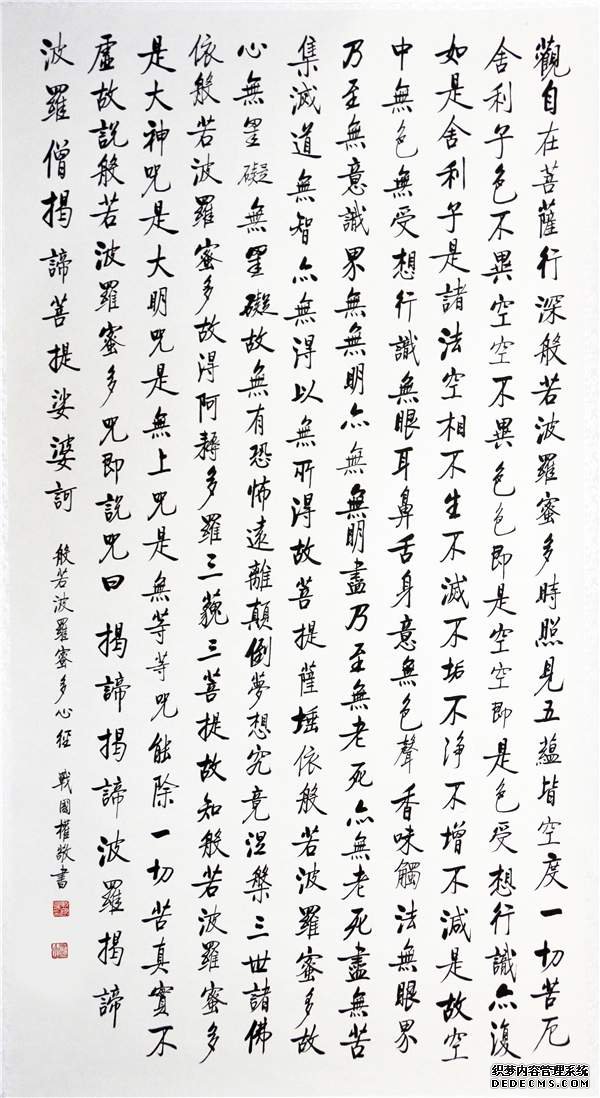 觀自在菩薩行深般若波羅蜜多時照見五蘊皆空度一切苦厄
舍利子色不異空空不異色色即是空空即是色受想行識亦復
如是舍利子是諸法空相不生不滅不垢不淨不增不減是故空
中無色無受想行識無眼耳鼻舌身意無色聲香味觸法無眼界
乃至無意識界無無明亦無無明盡乃至無老死亦無老死盡無苦
集滅道無智亦無得以無所得故菩提薩埵依般若波羅蜜多故
心無罣礙無罣礙故無有恐怖遠離顛倒夢想究竟涅槃三世諸佛
依般若波羅蜜多故得阿耨多羅三藐三菩提故知般若波羅蜜多
是大神咒是大明咒是無上咒是無等等咒能除一切苦真實不
虛故說般若波羅蜜多咒即說咒曰 揭諦揭諦波羅揭諦
波羅僧揭諦菩提娑婆訶 般若波羅蜜多心經 戰國權敬書
织梦内容管理系统
DEDECMS.COM